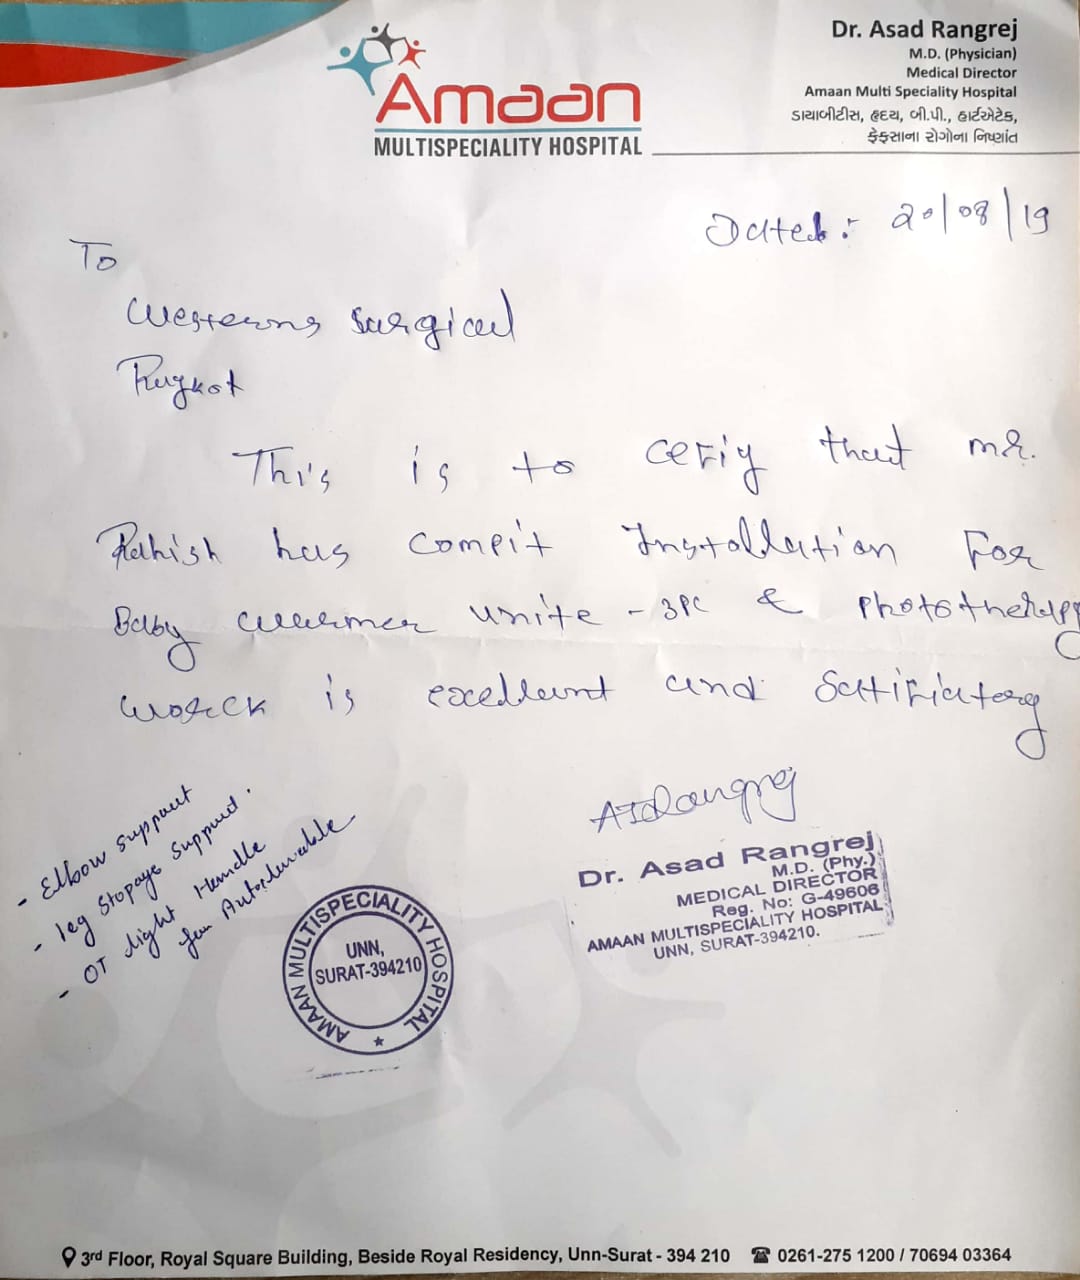 Amaan
MULTISPECIALITY HOSPITAL
Dr. Asad Rangrej
M.D. (Physician)
Medical Director
Amaan Multi Speciality Hospital
ડાયાબીટીસ, હૃદય, બી.પી., હાર્ટએટેક,
ફેફસાના રોગોના નિષ્ણાંત
Dated : 20/08/19
To
Westerns Surgical
Rajkot
This is to cerfiy that mr.
has compit Installation For
Baby warmer unite - 3pc & Phototherapy
worck is excellent and Satifiatory
- Elbow support
- leg Stopage Support.
- OT light Handle
for Autoclavable
Dr. Asad Rangrej
M.D. (Phy.)
MEDICAL DIRECTOR
Reg. No: G-49606
AMAAN MULTISPECIALITY HOSPITAL
UNN, SURAT-394210.
AMAAN MULTISPECIALITY HOSPITAL
UNN,
SURAT-394210
3rd Floor, Royal Square Building, Beside Royal Residency, Unn-Surat - 394 210 0261-275 1200 / 70694 03364